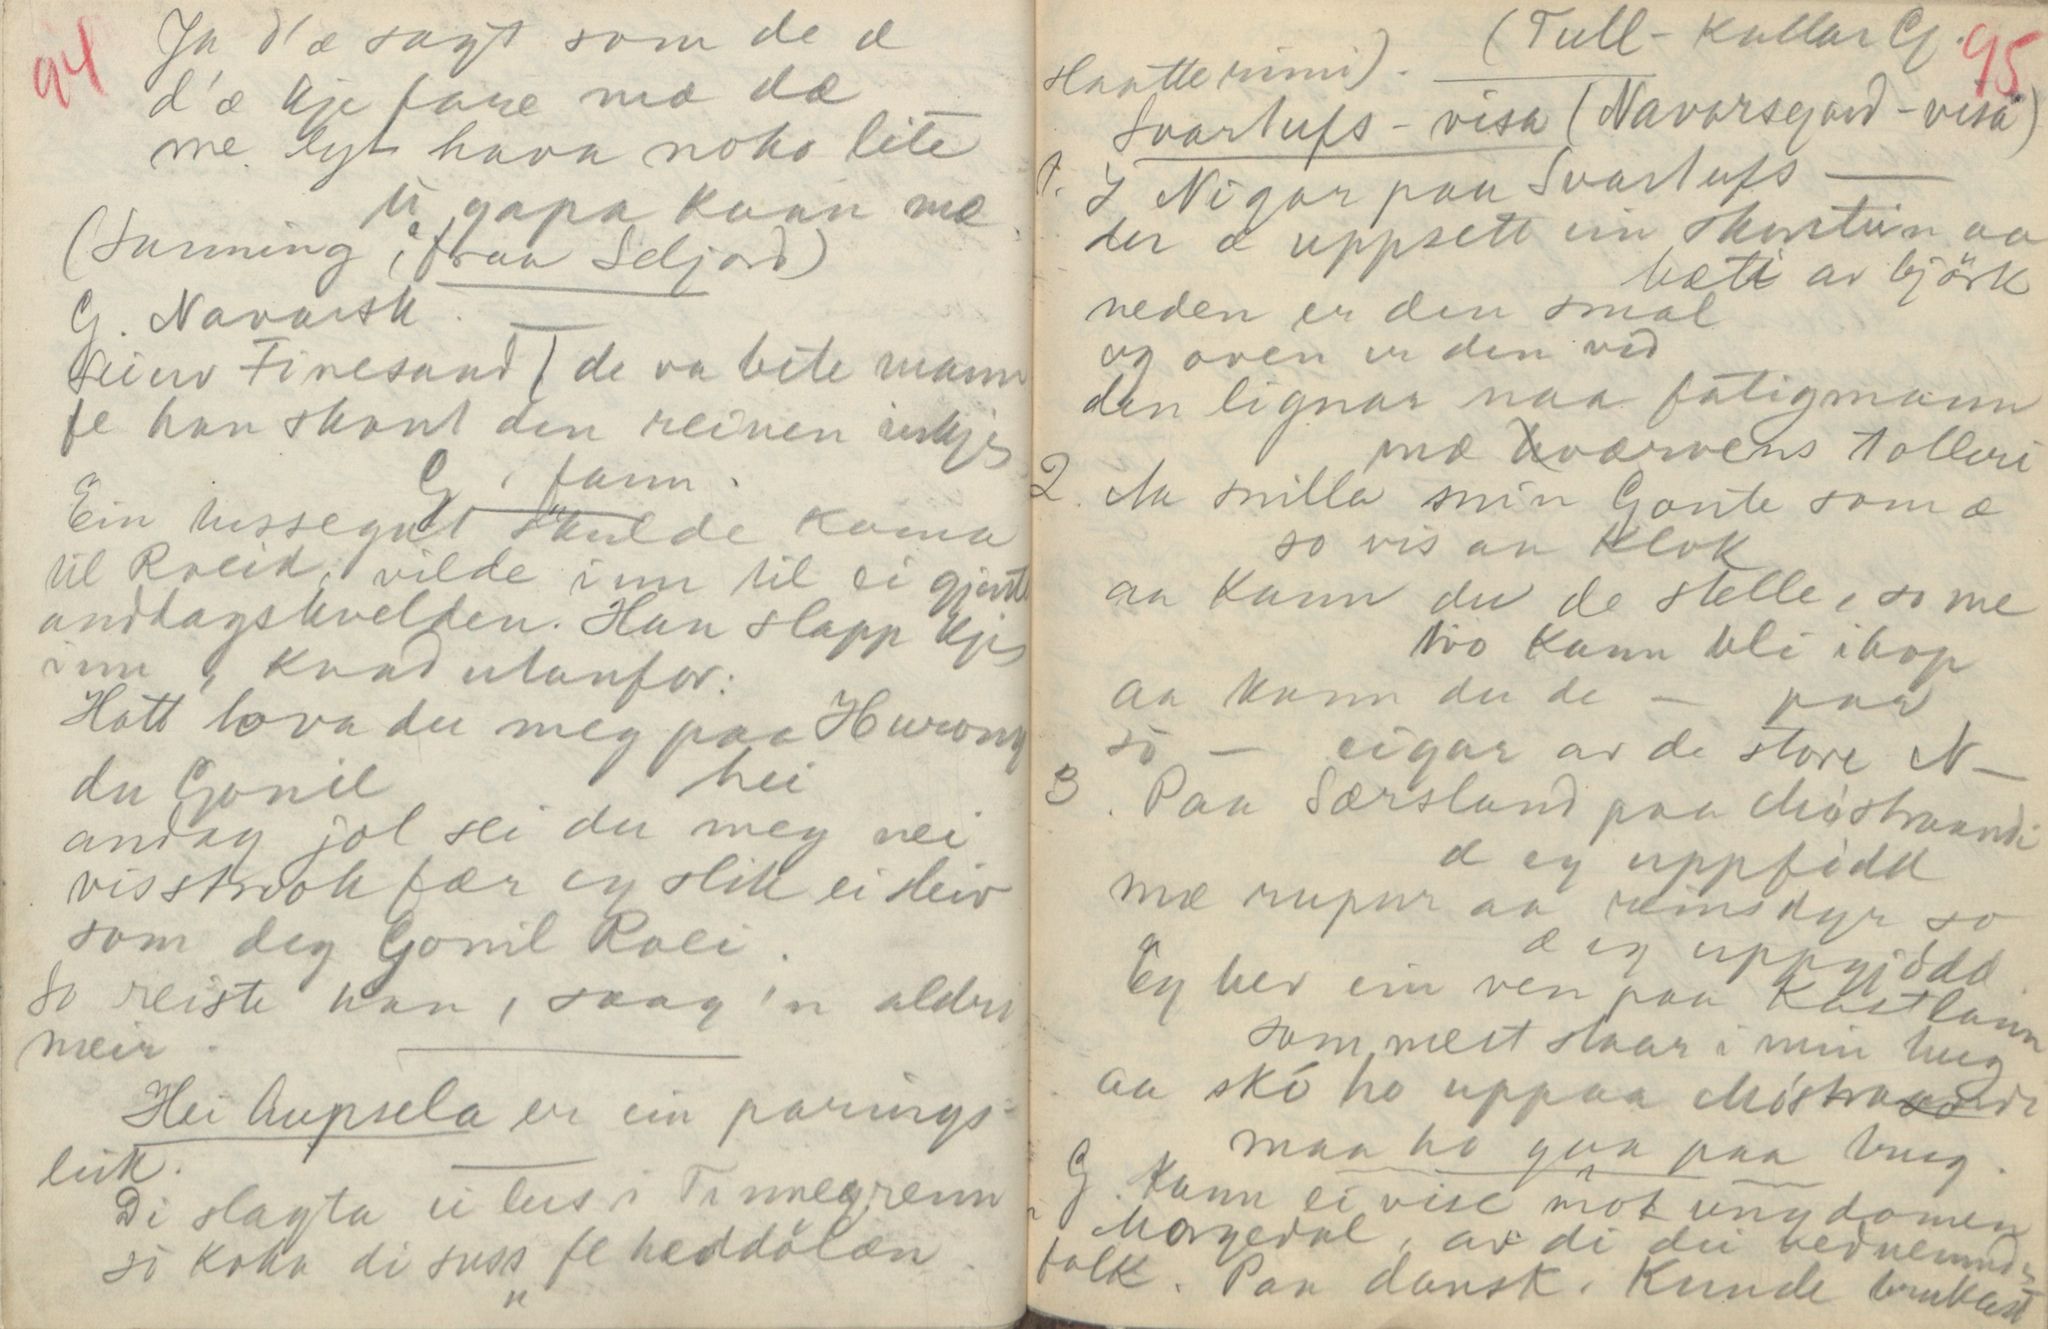 94
Ja d'æ sagt som de æ
d'æ kje fare mæ dæ
me lyt hava noko lite
å gapa kvan mæ.
(Sanning, ifraa Seljord)
G. Navarsk.
Finesand) de va bete mann
fe han skaut den reinen inkje
G. fann.
Ein tussegut skulde koma
til Roeid, vilde inn til ei gjente
anddagskvelden. Han slapp kje
inn, kvad utanfor:
Hott lova du meg paa
du Gonil hei
andag jol sei du meg nei
visstnok fær eg slik ei
som deg Gonil Roei.
So reiste han, saag 'n aldri
meir.
Hei hupsela er ein parings-
leik.
Di slagta ei lus i Tinnegrenn
so koka di suss fe heddölæn
95
(Tull-Kallar G.
slaatterimi).
Svartufs-visa (Navarsgard-visa)
1. I Nigar paa Svartufs —
der æ uppsett ein skorstein aa
bæti av björk
neden er den smal
og oven er den vid
den lignar naa fatigmann
mæ kværvens tolleri
2. Aa snille min Gonte som æ
so vis aa klok
aa kann du de stelle, so me
tvo kann bli ihop
aa kann du de — paa
so — eigar av de store N —
3. Paa Særsland paa Møstraandi
æ eg uppfødd
mæ rupur aa reinsdyr so
æ eg uppgjødd.
Eg hev ein ven paa Kostland
som mest staar i min hug
aa skó ho uppaa Møstraandi
maa ho gaa paa bug.
G. kann ei vise mot ungdomen
i Morgedal, av di dei
folk. Paa dansk. Kunde brukast